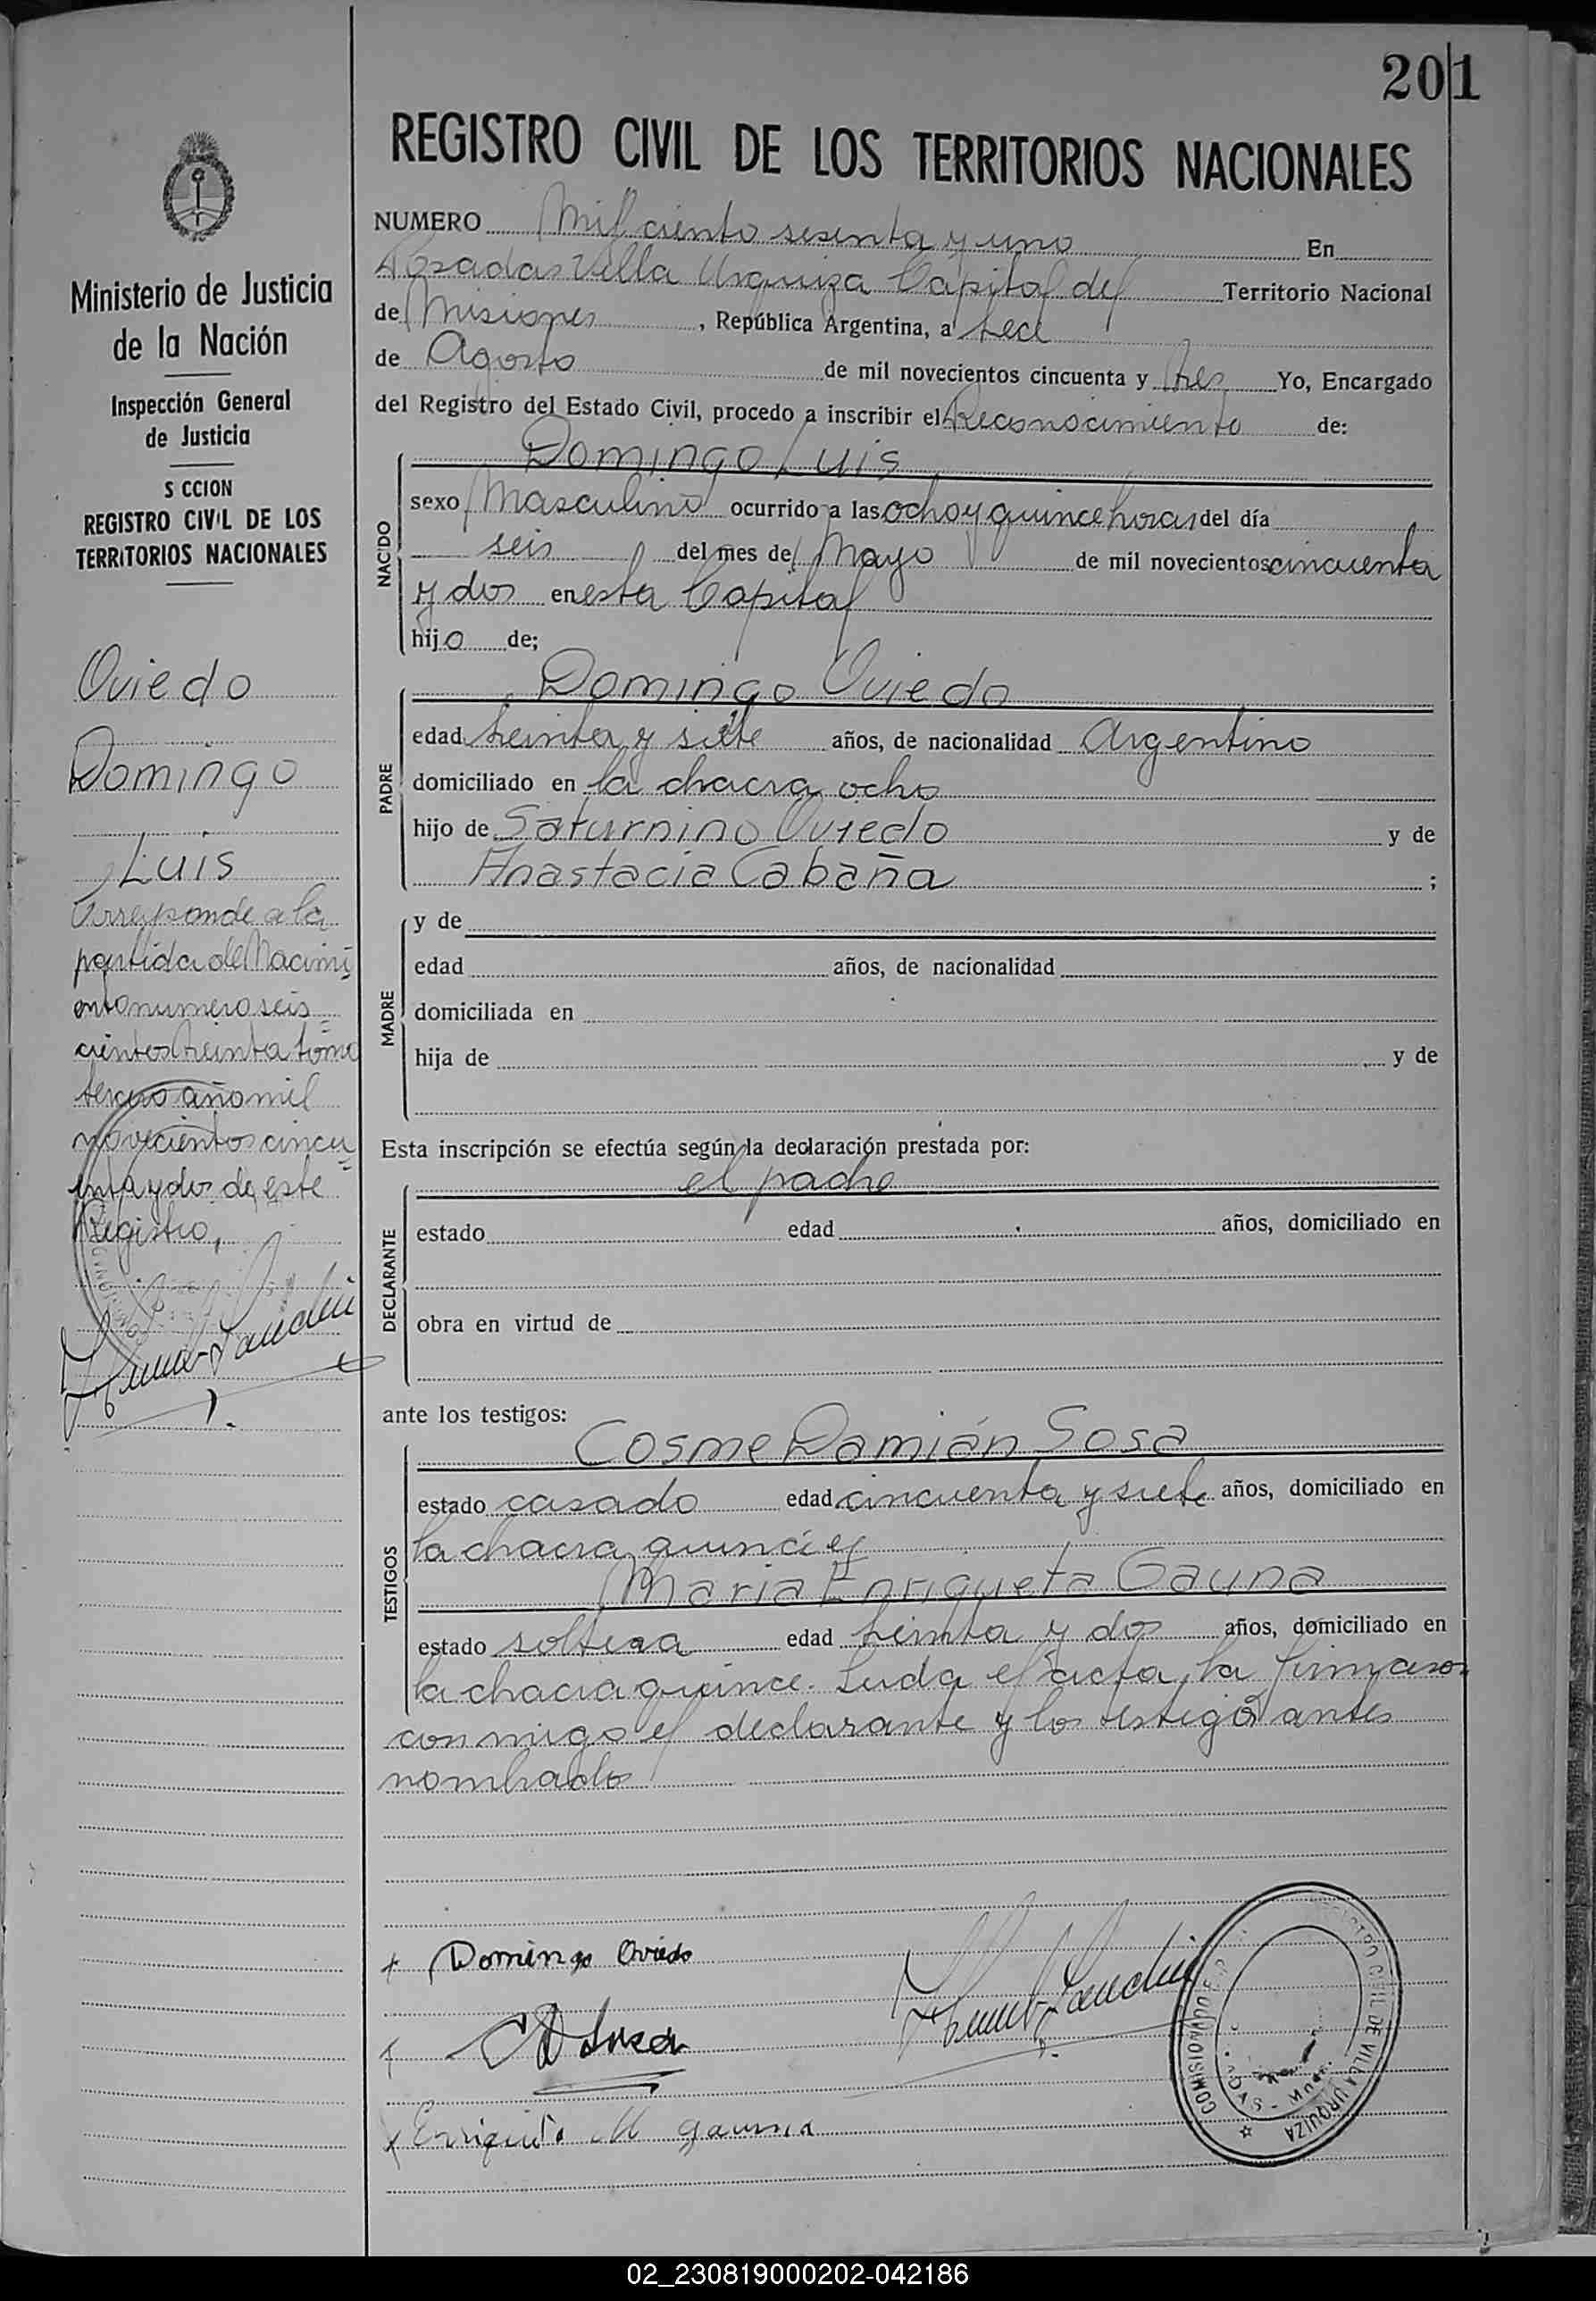 201
REGISTRO CIVIL DE LOS TERRITORIOS NACIONALES
NUMERO Mil ciento sesenta y uno En
Posadas Villa Urquiza Capital del Territorio Nacional
de Misiones, República Argentina, a trece
de Agosto de mil novecientos cincuenta y tres Yo, Encargado
del Registro del Estado Civil, procedo a inscribir el Reconocimiento de:
NACIDO
Domingo Luis
sexo Masculino ocurrido a las ocho y quince horas del día
seis del mes de Mayo de mil novecientos cincuenta
y dos en esta Capital
hijo de;
PADRE
Domingo Oviedo
edad treinta y siete años, de nacionalidad Argentino
domiciliado en la chacra ocho
hijo de Saturnino Oviedo y de
Anastacia Cabaña ;
MADRE
y de
edad años, de nacionalidad
domiciliada en
hija de y de
Esta inscripción se efectúa según la declaración prestada por:
DECLARANTE
el padre
estado edad años, domiciliado en
obra en virtud de
ante los testigos:
TESTIGOS
Cosme Damián Sosa
estado casado edad cincuenta y siete años, domiciliado en
la chacra quince y
Maria Enriqueta Gauna
estado soltera edad treinta y dos años, domiciliado en
la chacra quince. Leida el acta, la firmaron
conmigo el declarante y los testigos antes
nombrados
+ Domingo Oviedo
CD Sosa
x Enriqueta M gauna
COMISION REGISTRO CIVIL DE VILLA URQUIZA
Ministerio de Justicia
de la Nación
Inspección General
de Justicia
S CCION
REGISTRO CIVIL DE LOS
TERRITORIOS NACIONALES
Oviedo
Domingo
Luis
Corresponde a la
partida de Nacimi
ento numero seis=
cientos treinta tomo
tercero año mil
novecientos cincu=
enta y dos de este
Registro,
02_230819000202-042186